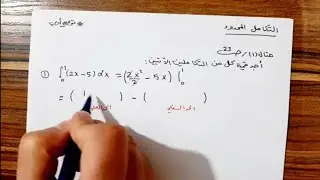 التكامل المحدود
مثال (1) / ص 23
أجد قيمة كل من التكاملين الآتيين:
① ∫₀¹ (2x - 5) dx = (2x²/2 - 5x) |₀¹
= ( 1 ) - ( )
الحد السفلي